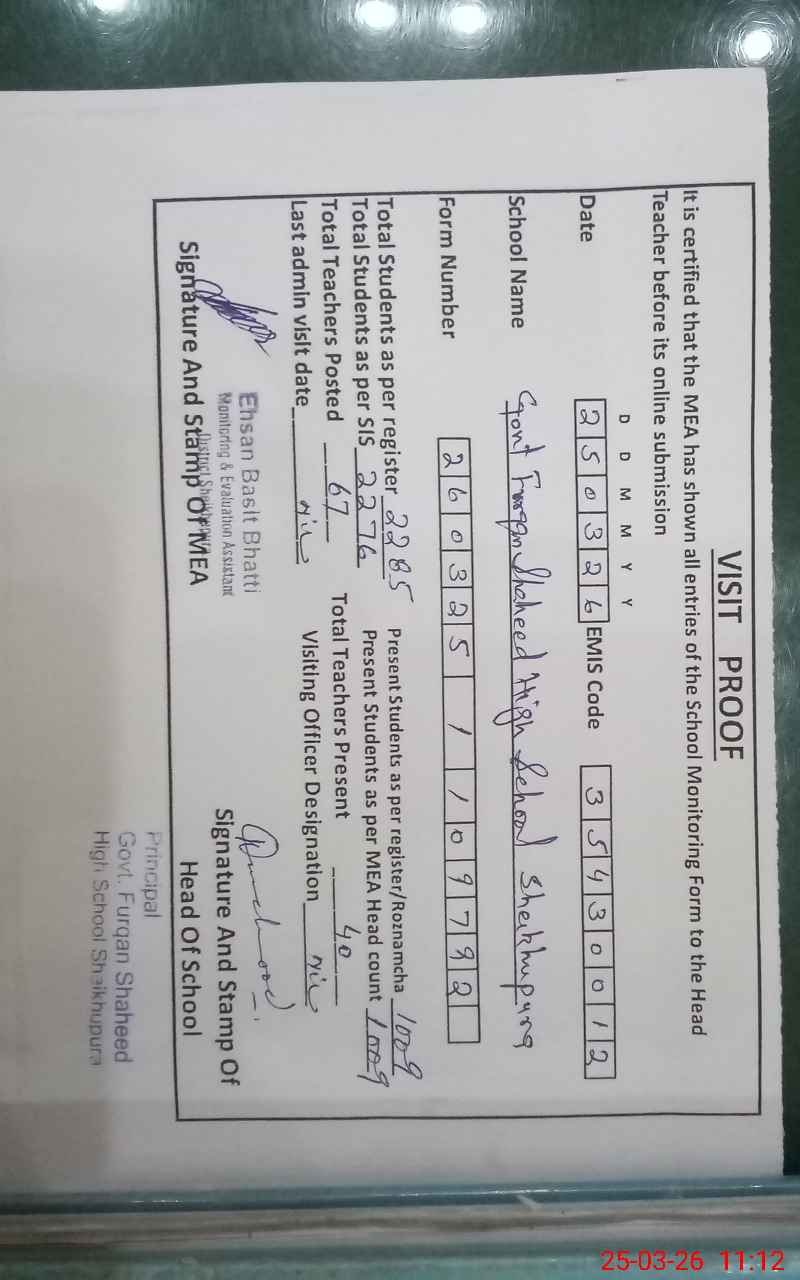 VISIT PROOF
It is certified that the MEA has shown all entries of the School Monitoring Form to the Head
Teacher before its online submission
D D M M Y Y
Date 250326 EMIS Code 35430012
School Name Govt Furqan Shaheed High School Sheikhupura
Form Number 2603251109792
Total Students as per register 2285 Present Students as per register/Roznamcha 1009
Total Students as per SIS 2276 Present Students as per MEA Head count 1009
Total Teachers Posted 67 Total Teachers Present 40
Last admin visit date nil Visiting Officer Designation nil
Ehsan Basit Bhatti
Monitoring & Evaluation Assistant
District Sheikhupura
Signature And Stamp Of MEA
Signature And Stamp Of
Head Of School
Principal
Govt. Furqan Shaheed
High School Shaikhupura
25-03-26 11:12